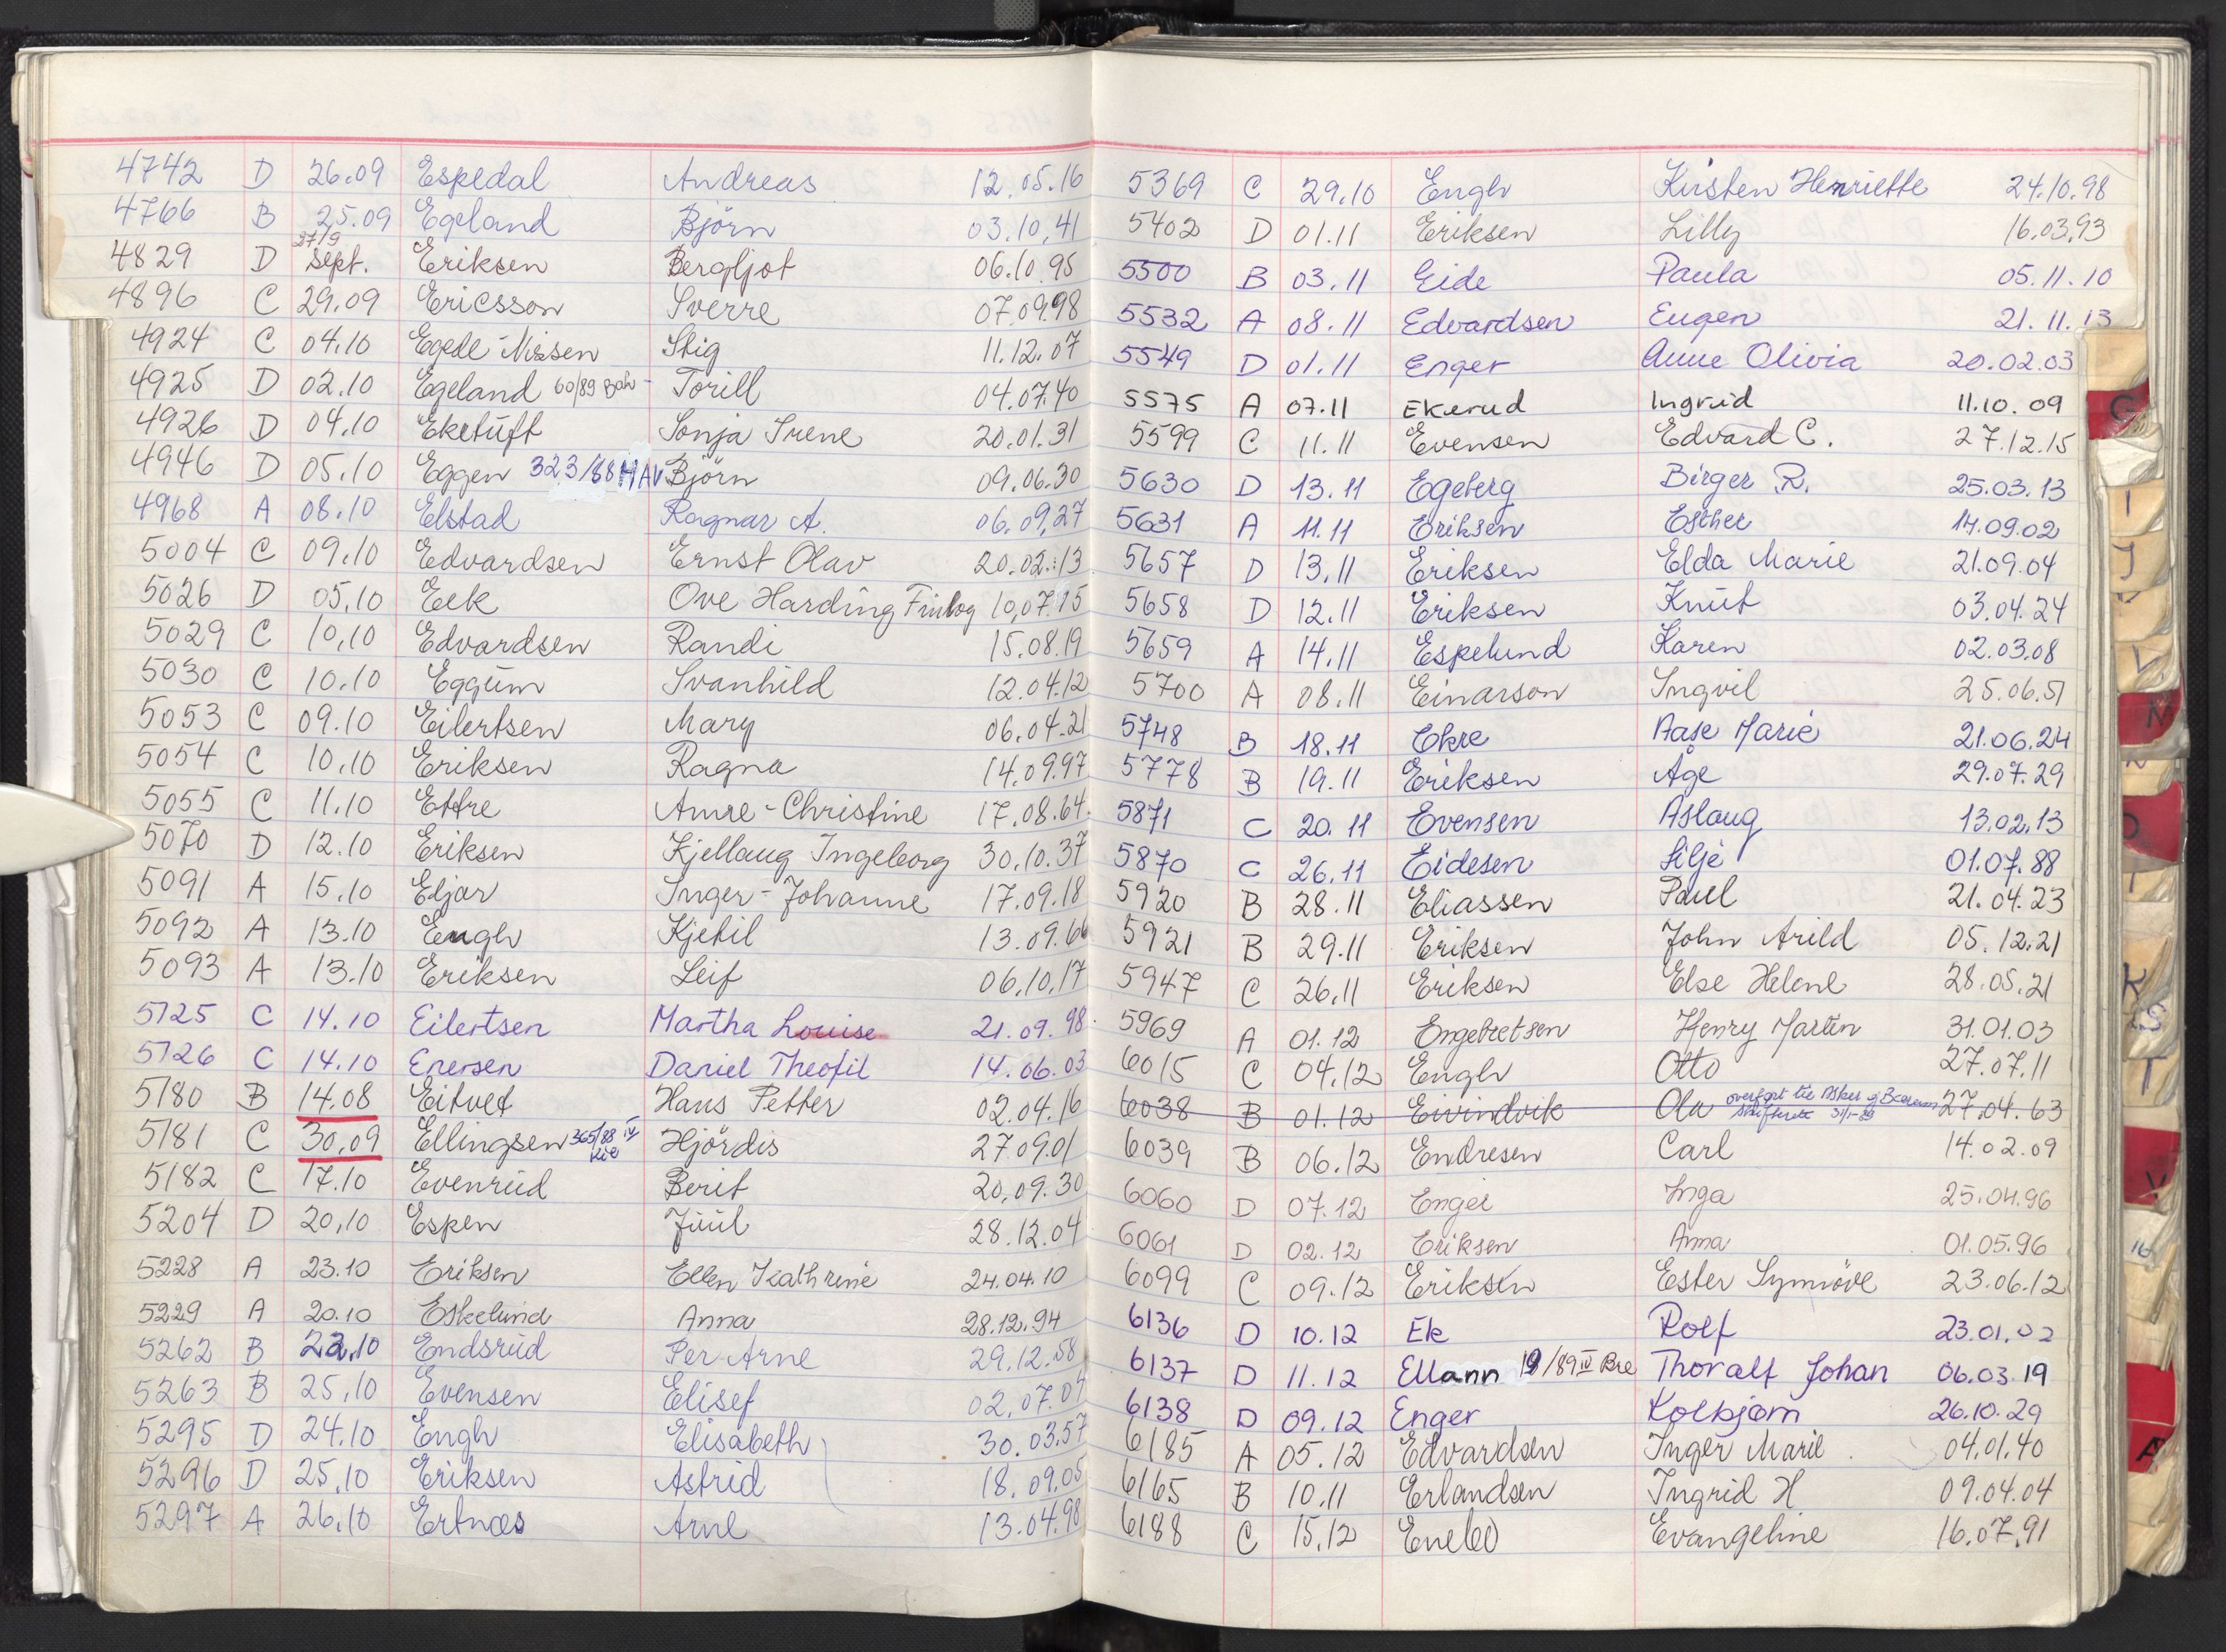 4742 D 26.09 Espedal Andreas 12.05.16
4766 B 25.09 Egeland Björn 03.10.41
4829 D 27/9 sept. Eriksen Bergljot 06.10.95
4896 C 29.09 Ericsson Sverre 07.09.98
4924 C 04.10 Egede-Nissen Stig 11.12.07
4925 D 02.10 Egeland 60/89 Torill 04.07.40
4926 D 04.10 Eketuft Sonja Irene 20.01.31
4946 D 05.10 Eggen 323/88 HAV Björn 09.06.30
4968 A 08.10 Elstad Ragnar A. 06.09.27
5004 C 09.10 Edvardsen Ernst Olav 20.02.13
5026 D 05.10 Eek Ove Harding 10.07.15
5029 C 10.10 Edvardsen Randi 15.08.19
5030 C 10.10 Eggum Svanhild 12.04.12
5053 C 09.10 Eilertsen Mary 06.04.21
5054 C 10.10 Eriksen Ragna 14.09.97
5055 C 11.10 Ettre Anne-Christine 17.08.64
5070 D 12.10 Eriksen Kjellaug Ingeborg 30.10.37
5091 A 15.10 Eljar Inger-Johanne 17.09.18
5092 A 13.10 Engh Kjetil 13.09.66
5093 A 13.10 Eriksen Leif 06.10.17
5125 C 14.10 Eilertsen Martha Louise 21.09.98
5126 C 14.10 Enersen Daniel Theofil 14.06.03
5180 B 14.08 Eitvet Hans Petter 02.04.16
5181 C 30.09 Ellingsen 365/88 IV Hjördis 27.09.01
5182 C 17.10 Evenrud Berit 20.09.30
5204 D 20.10 Espen Juul 28.12.04
5228 A 23.10 Eriksen Ellen Kathrine 24.04.10
5229 A 20.10 Eskelund Anna 28.12.94
5262 B 22.10 Endsrud Per Arne 29.12.58
5263 B 25.10 Evensen Elisef 02.07.07
5295 D 24.10 Engh Elisabeth 30.03.57
5296 D 25.10 Eriksen Astrid 18.09.05
5297 A 26.10 Ertnæs Arne 13.04.98
5369 C 29.10 Engh Kirsten Henriette 24.10.98
5402 D 01.11 Eriksen Lilly 16.03.93
5500 B 03.11 Eide Paula 05.11.10
5532 A 08.11 Edvardsen Eugen 21.11.13
5549 D 01.11 Enger Anne Olivia 20.02.03
5575 A 07.11 Ekerud Ingrid 11.10.09
5599 C 11.11 Evensen Edvard C. 27.12.15
5630 D 13.11 Egeberg Birger R. 25.03.13
5631 A 11.11 Eriksen Esther 14.09.02
5657 D 13.11 Eriksen Elda Marie 21.09.04
5658 D 12.11 Eriksen Knut 03.04.24
5659 A 14.11 Espelund Karen 02.03.08
5700 A 08.11 Einarson Ingvil 25.06.51
5748 B 18.11 Ekre Aase Marie 21.06.24
5778 B 19.11 Eriksen Åge 29.07.29
5871 C 20.11 Evensen Aslaug 13.02.13
5870 C 26.11 Eidesen Silje 01.07.88
5920 B 28.11 Eliassen Paul 21.04.23
5921 B 29.11 Eriksen John Arild 05.12.21
5947 C 26.11 Eriksen Else Helene 28.05.21
5969 A 01.12 Engebretsen Henry Martin 31.01.03
6015 C 04.12 Engh Otto 27.07.11
6038 B 01.12 Eivindvik Ola overført til Asker og Bærum skifterett 31/1-89 27.04.63
6039 B 06.12 Endresen Carl 14.02.09
6060 D 07.12 Enger Inga 25.04.96
6061 D 02.12 Eriksen Anna 01.05.96
6099 C 09.12 Eriksen Ester Synnöve 23.06.12
6136 D 10.12 Ek Rolf 23.01.02
6137 D 11.12 Ellann 19/89 IV Bre Thoralf Johan 06.03.19
6138 D 09.12 Enger Kolbjørn 26.10.29
6185 A 05.12 Edvardsen Inger Marie 04.01.40
6165 B 10.11 Erlandsen Ingrid H 09.04.04
6188 C 15.12 Enebo Evangeline 16.07.91
G
I
J
N
O
K
S
T
V
16
A